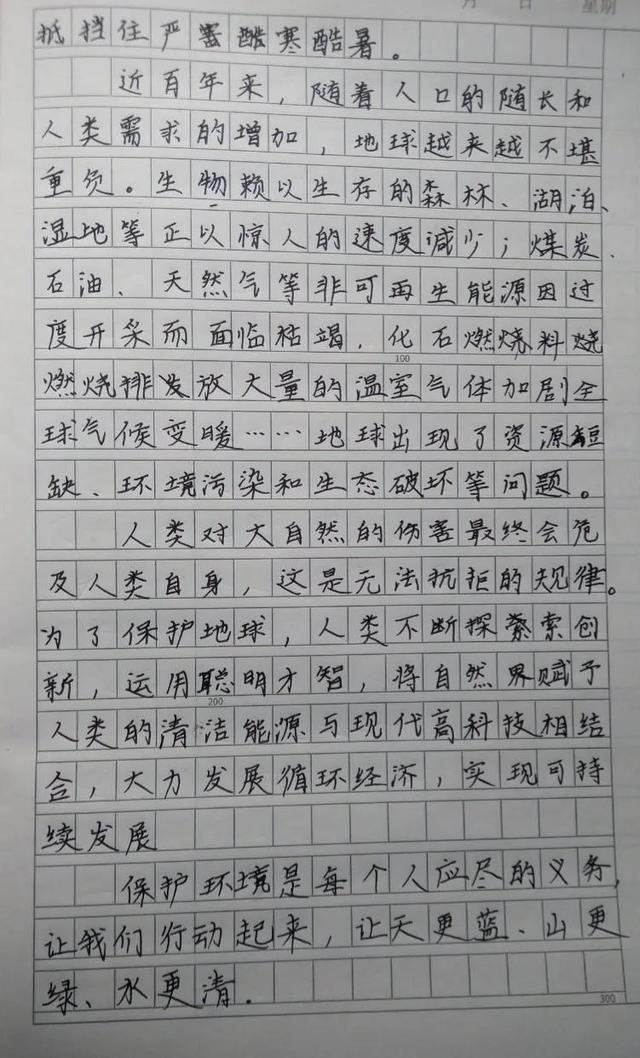 月 日 星期
抵挡住严害酷寒酷暑。
近百年来，随着人口的随长和
人类需求的增加，地球越来越不堪
重负。生物赖以生存的森林、湖泊、
湿地等正以惊人的速度减少；煤炭、
石油、天然气等非可再生能源因过
度开采而面临枯竭，化石燃烧料烧
100
燃烧排发放大量的温室气体加剧全
球气候变暖……地球出现了资源短
缺、环境污染和生态破坏等问题。
人类对大自然的伤害最终会危
及人类自身，这是无法抗拒的规律。
为了保护地球，人类不断探索索创
新，运用聪明才智，将自然界赋予
200
人类的清洁能源与现代高科技相结
合，大力发展循环经济，实现可持
续发展
保护环境是每个人应尽的义务，
让我们行动起来，让天更蓝、山更
绿、水更清.
300